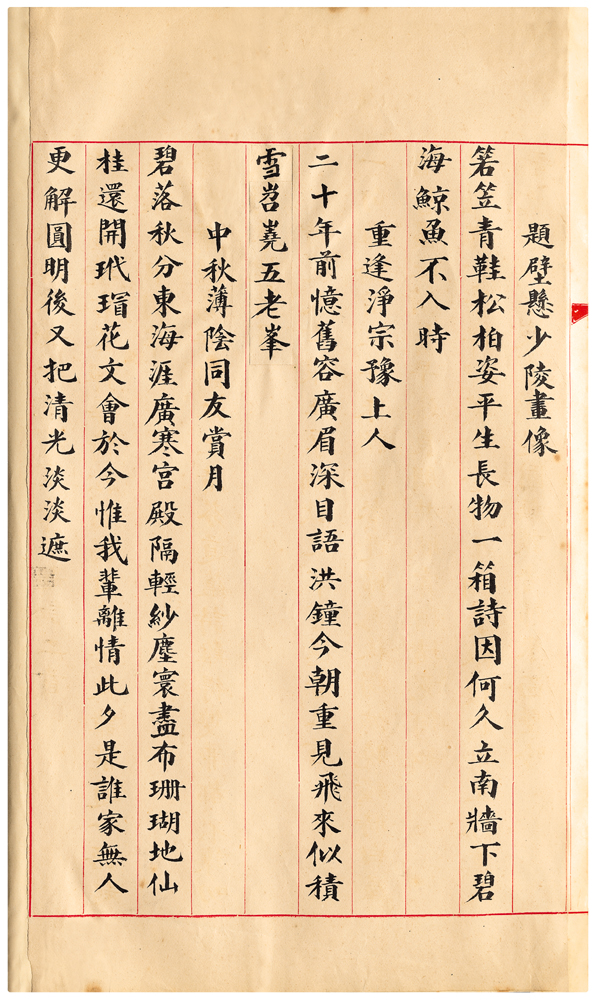 題壁懸少陵畫像
箬笠青鞋松柏姿平生長物一箱詩因何久立南牆下碧
海鯨魚不入時
重逢淨宗豫上人
二十年前憶舊容廣眉深目語洪鐘今朝重見飛來似積
雪岧嶤五老峯
中秋薄陰同友賞月
碧落秋分東海涯廣寒宮殿隔輕紗塵寰盡布珊瑚地仙
桂還開玳瑁花文會於今惟我輩離情此夕是誰家無人
更解圓明後又把清光淡淡遮